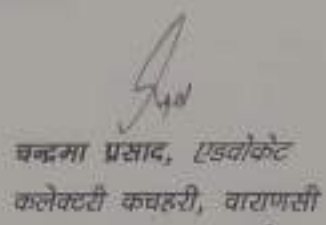 चन्द्रमा प्रसाद, एडवोकेट
कलेक्टरी कचहरी, वाराणसी